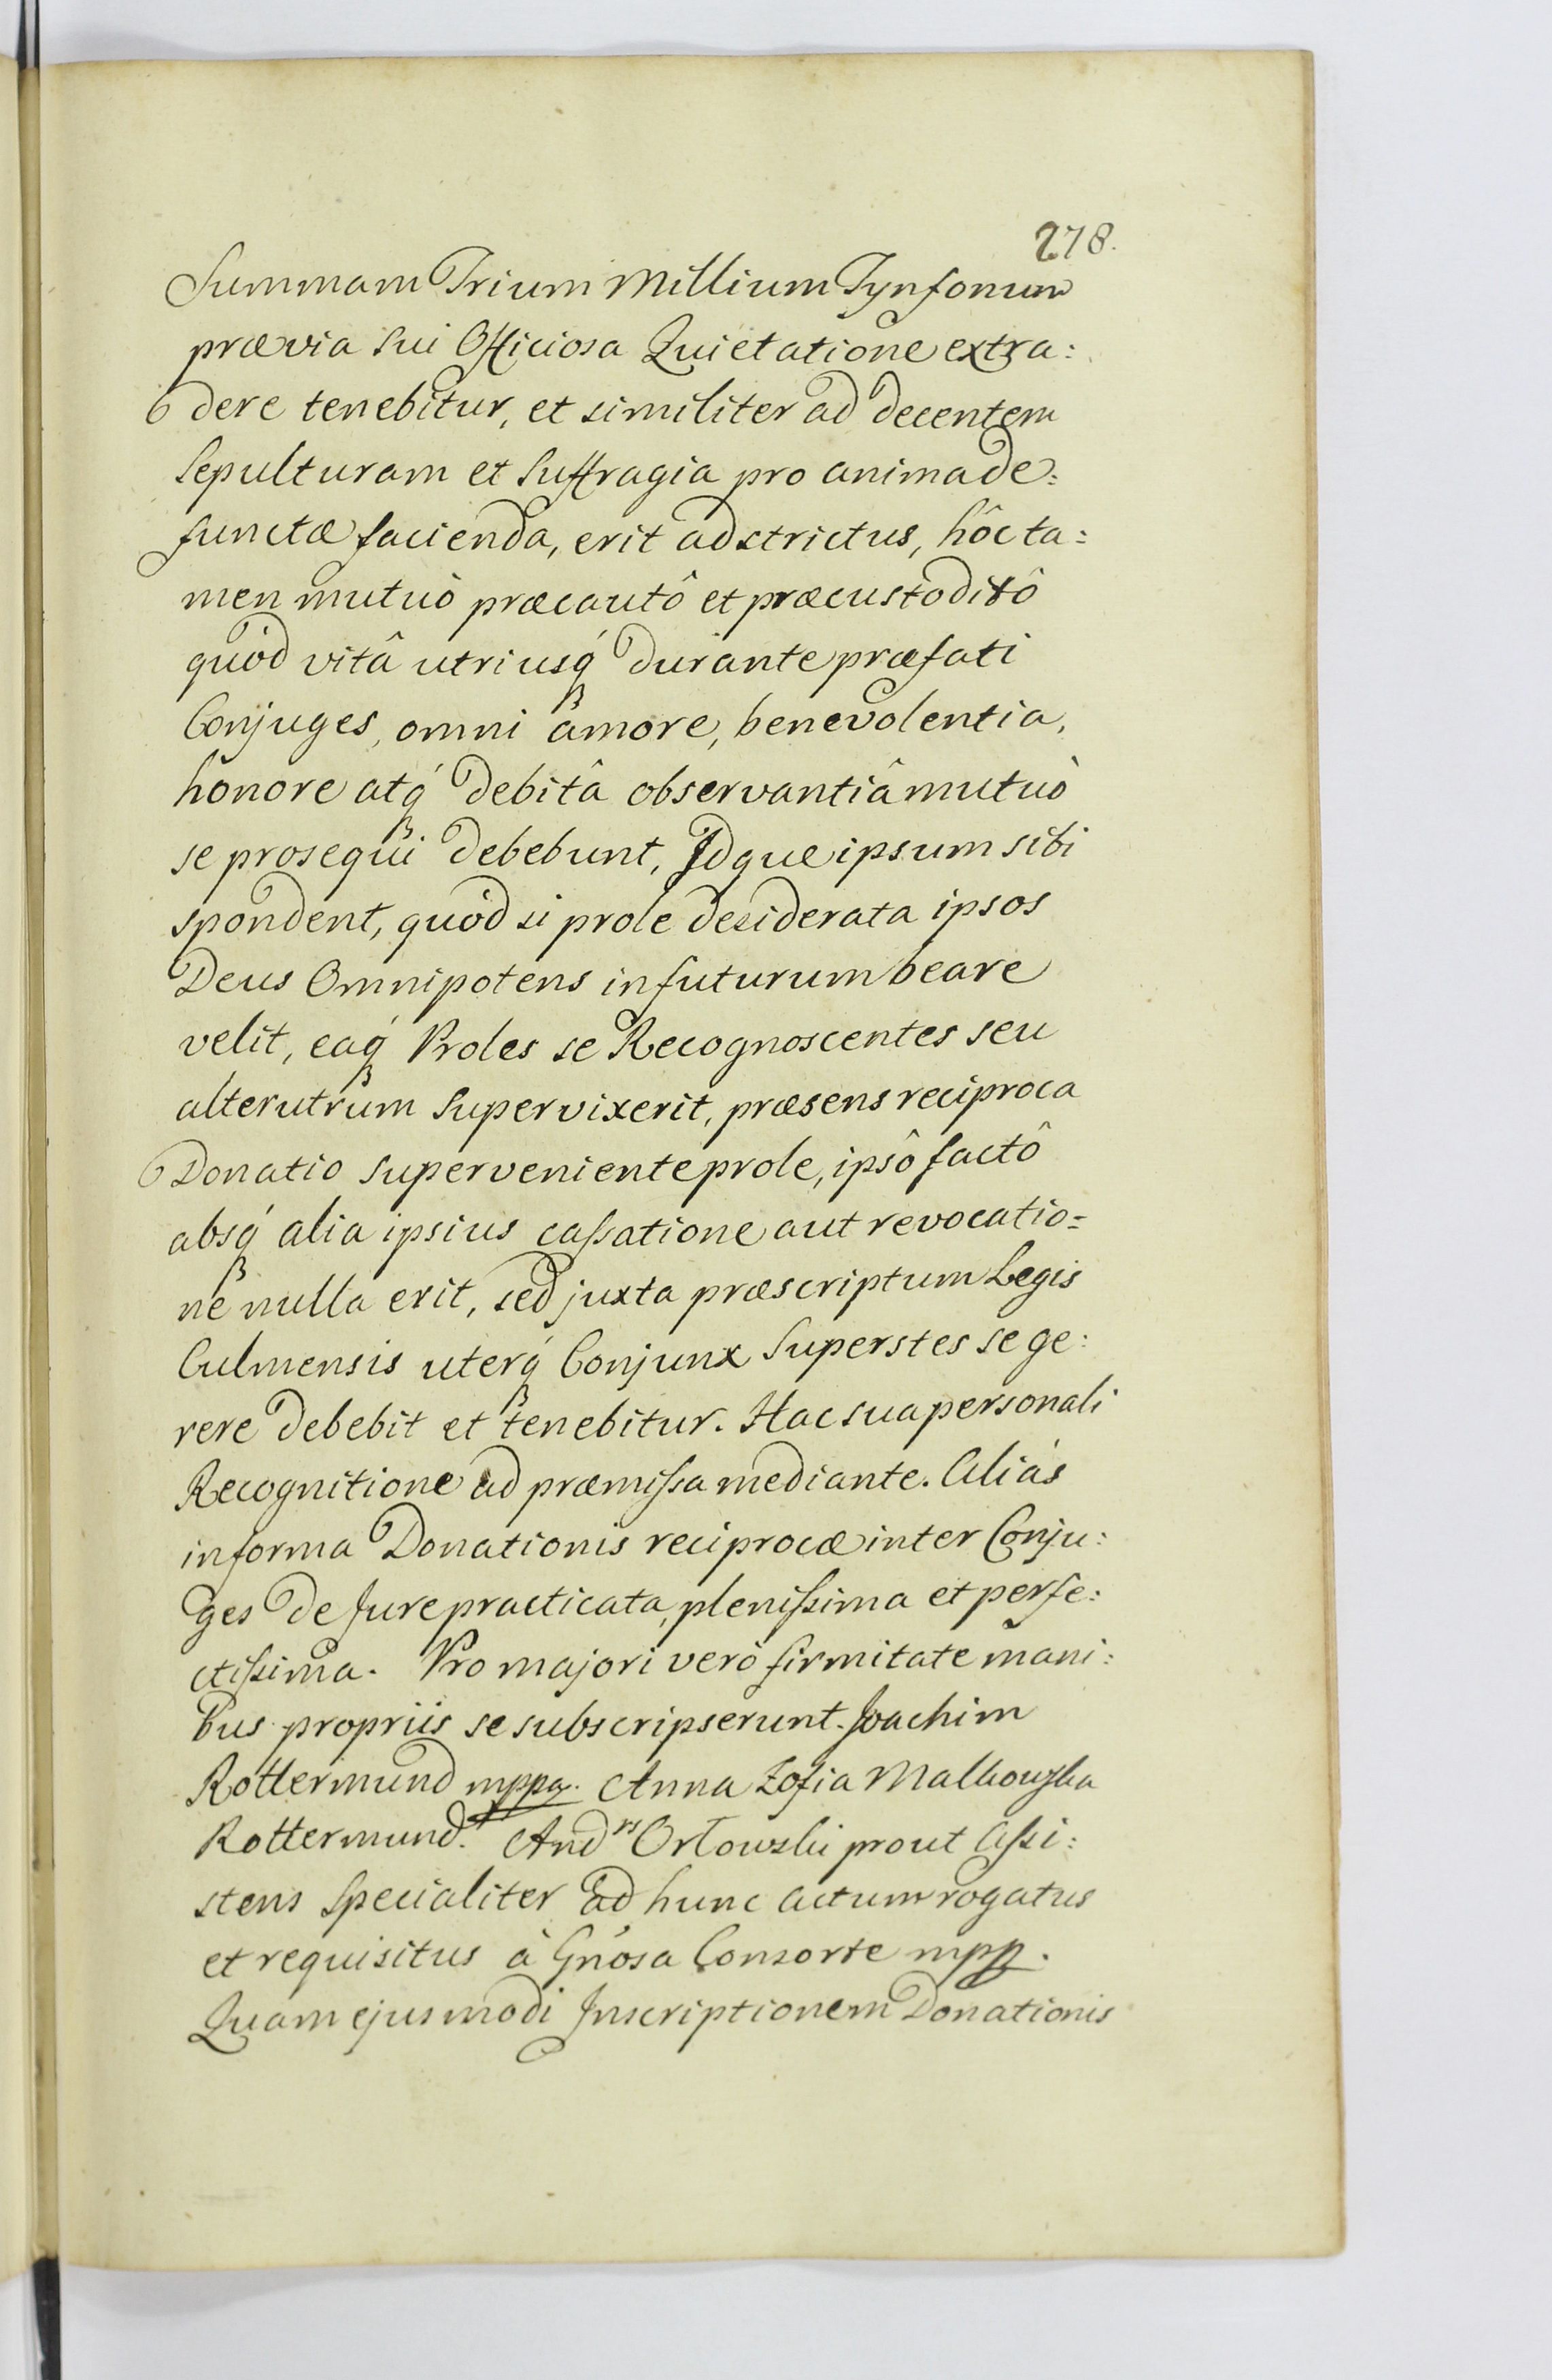 278.
Summam Trium Millium Tynfonum
prævia sui Officiosa Quietatione extra:
dere tenebitur, et similiter ad decentem
Sepulturam et Suffragia pro anima de:
functæ facienda, erit adstrictus, hôc ta:
men mutuò præcautô et præcustoditô
quòd vitâ utriusq́ durante præfati
Conjuges, omni amore, benevolentia,
honore atq́ debitâ observantiâ mutuò
se prosequi debebunt, Idque ipsum sibi
spondent, quòd si prole desiderata ipsos
Deus Omnipotens in futurum beare
velit, eaq́ Proles se Recognoscentes seu
alterutrum supervixerit, præsens reciproca
Donatio superveniente prole, ipsô factô
absq́ alia ipsius cassatione aut revocatio=
ne nulla erit, sed juxta præscriptum Legis
Culmensis uterq́ Conjunx Superstes se ge:
rere debebit et tenebitur. Hac sua personali
Recognitione ad præmissa mediante. Aliàs
in forma Donationis reciprocæ inter Conju:
ges de Jure practicata, plenissima et perfe:
ctissima. Pro majori verò firmitate mani:
bus propriis se subscripserunt. Joachim
Rottermund mppa. Anna Zofia Malkowska
Rottermund. And rs Orłowski prout Assi:
stens specialiter ad hunc actum rogatus
et requisitus à Gñosa Consorte mpp.
Quam ejusmodi Inscriptionem Donationis